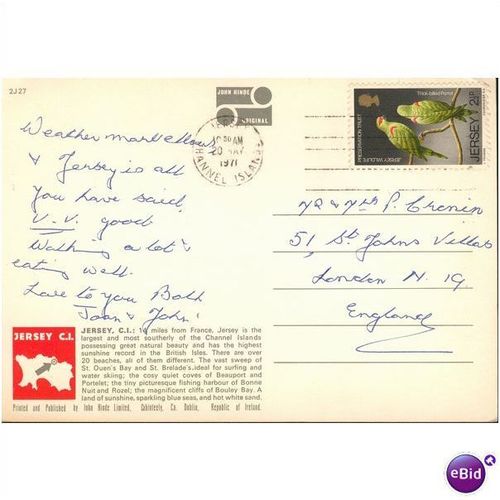 2J27
JOHN HINDE
ORIGINAL
JERSEY
AM
20 MAY
1971
CHANNEL ISLANDS
Thick-billed Parrot
JERSEY WILDLIFE
PRESERVATION TRUST
JERSEY 2½P
Weather marvellous
& Jersey is all
you have said,
V.V. good
Walking a lot &
eating well.
Love to you Both
Joan & John
Mr & Mrs P. Cronin
51, St Johns Villas
London N. 19
England
JERSEY C.I.
JERSEY, C.I.: 14 miles from France, Jersey is the
largest and most southerly of the Channel Islands
possessing great natural beauty and has the highest
sunshine record in the British Isles. There are over
20 beaches, all of them different. The vast sweep of
St. Ouen's Bay and St. Brelade's, ideal for surfing and
water skiing; the cosy quiet coves of Beauport and
Portelet; the tiny picturesque fishing harbour of Bonne
Nuit and Rozel; the magnificent cliffs of Bouley Bay. A
land of sunshine, sparkling blue seas, and hot white sand.
Printed and Published by John Hinde Limited, Cabinteely, Co. Dublin, Republic of Ireland.
eBid